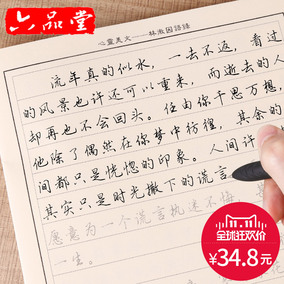 六品堂
心靈美文——林徽因語錄
流年真的似水,一去不返,看过
的风景也许还可以重来,而逝去的人
却再也不会回头。任由你千思万想,
他除了偶然在你梦中彷徨,其余的
间都只是恍惚的印象。人间许
其实只是时光撒下的谎言
愿意为一个谎言执迷不悔
一生。
11.11
全球狂欢价
¥34.8元